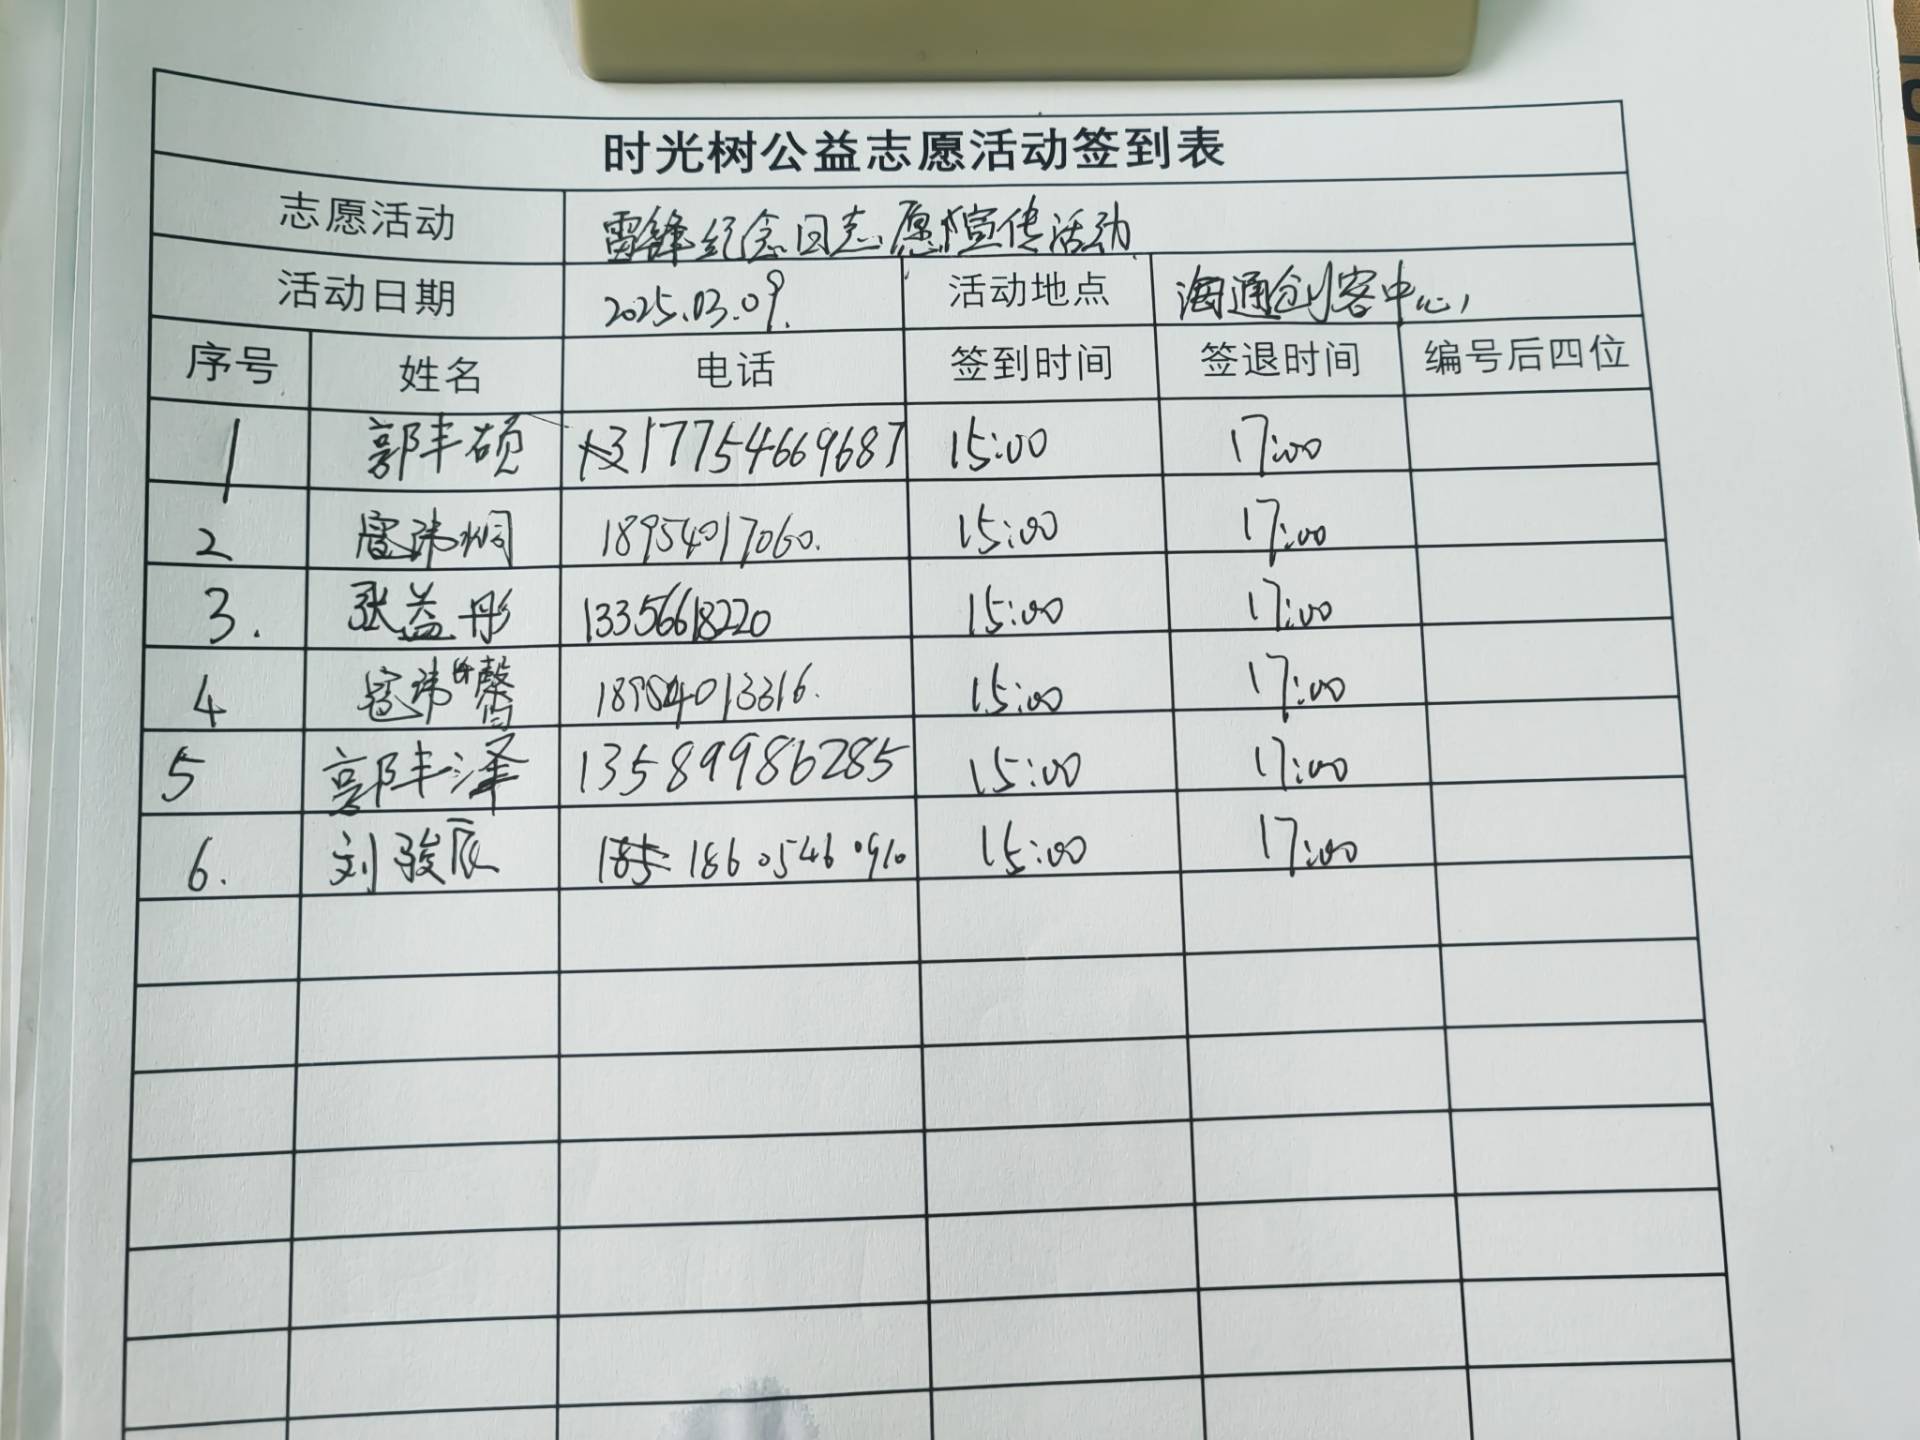 时光树公益志愿活动签到表
志愿活动 雷锋纪念日志愿宣传活动
活动日期 2025.03.09. 活动地点 海通创客中心
序号 姓名 电话 签到时间 签退时间 编号后四位
1 郭丰硕 17754669687 15:00 17:00
2 18954017060. 15:00 17:00
3. 张益彤 13356618220 15:00 17:00
4 18954013316. 15:00 17:00
5 郭丰泽 13589986285 15:00 17:00
6. 刘骏辰 18605460910 15:00 17:00